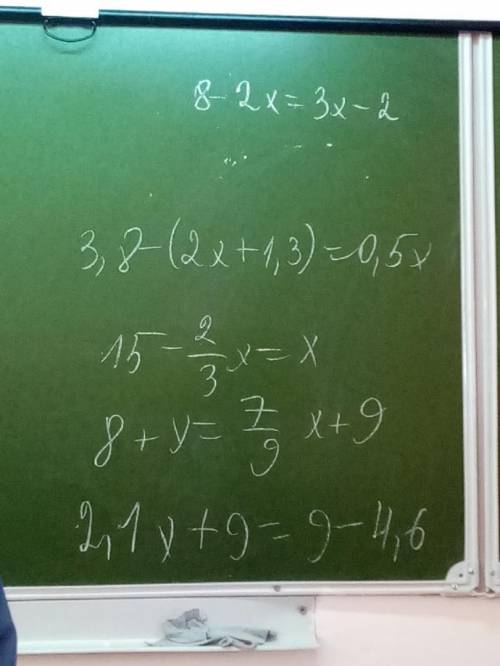 8 - 2x = 3x - 2
3,8 - (2x + 1,3) = 0,5x
15 - 2/3 x = x
8 + y = 7/9 x + 9
2,1y + 9 = 9 - 4,6